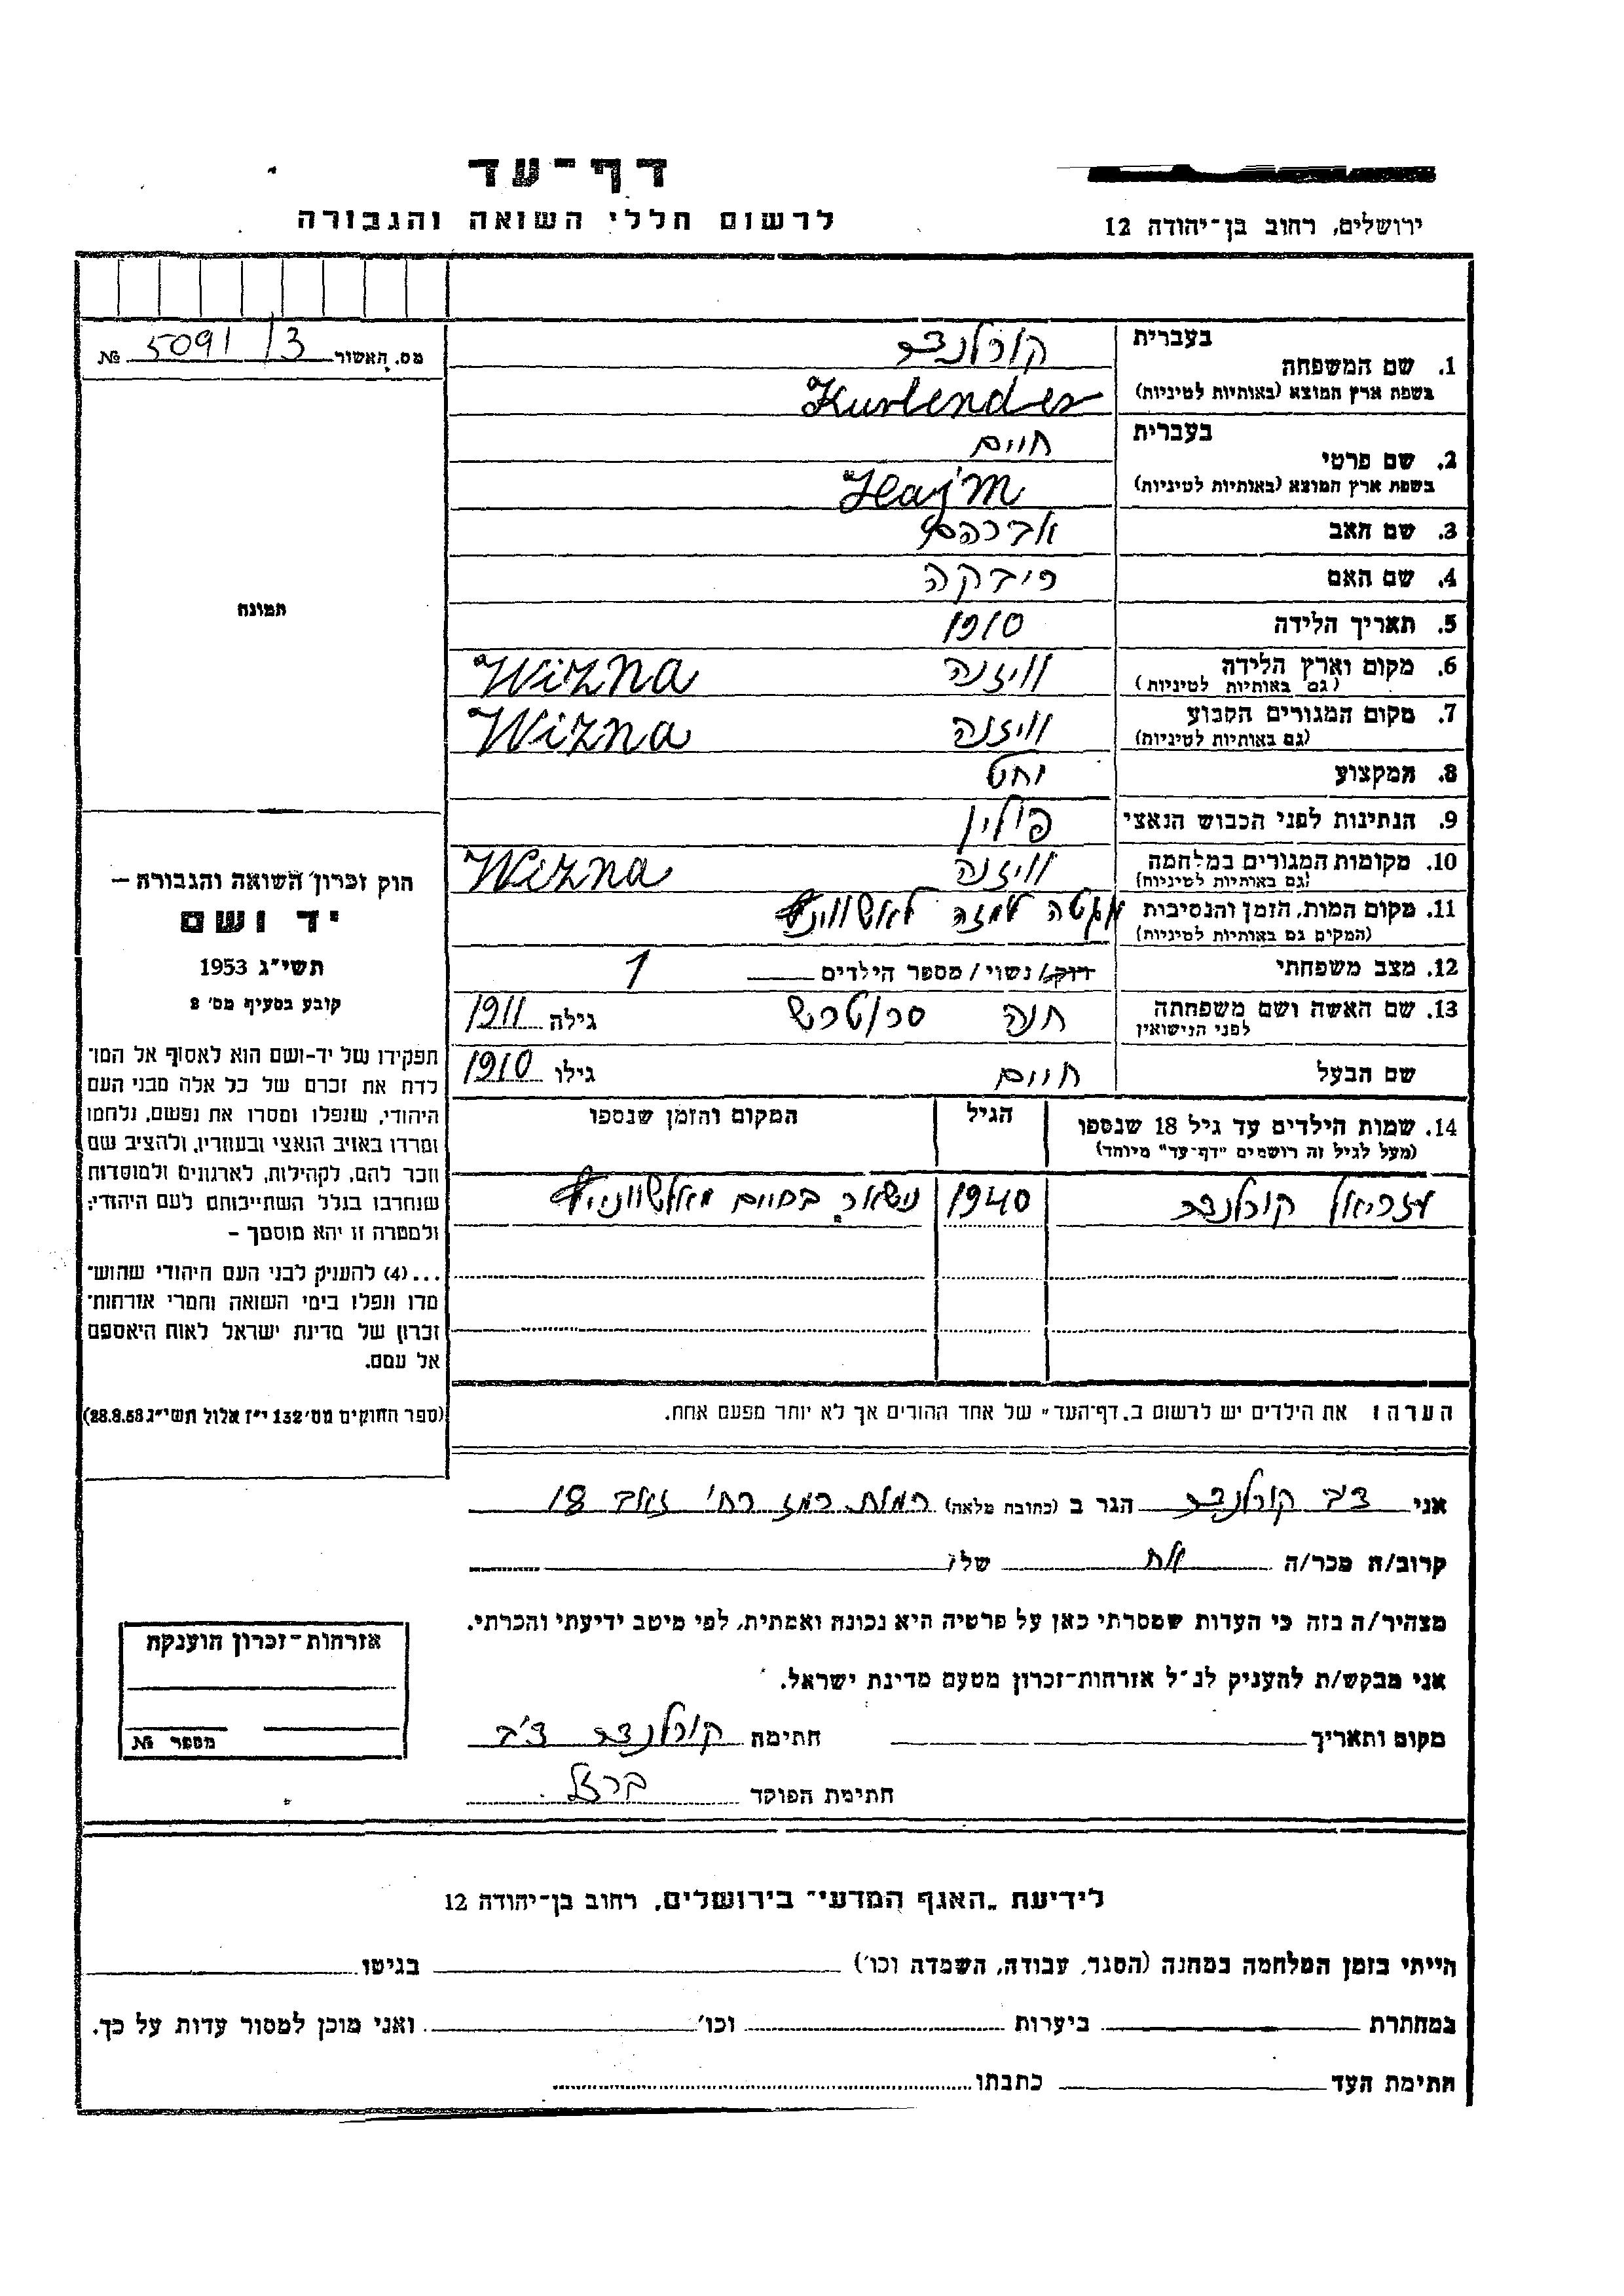 דף־עד
לרשום חללי השואה והגבורה
ירושלים, רחוב בן־יהודה 12
מס. האשור 5091/3 №
בעברית קורלנדר
1. שם המשפחה
בשפת ארץ המוצא (באותיות לטיניות) Kurlender
בעברית חיים
2. שם פרטי
בשפת ארץ המוצא (באותיות לטיניות) Hajm
3. שם האב אברהם
4. שם האם ריבקה
5. תאריך הלידה 1910
6. מקום וארץ הלידה וויזנה Wizna
(גם באותיות לטיניות)
7. מקום המגורים הקבוע וויזנה Wizna
(גם באותיות לטיניות)
8. המקצוע
9. הנתינות לפני הכבוש הנאצי פולין
10. מקומות המגורים במלחמה וויזנה Wizna
(גם באותיות לטיניות)
11. מקום המות, הזמן והנסיבות
(המקום גם באותיות לטיניות)
12. מצב משפחתי רווק/ נשוי / מספר הילדים 1
13. שם האשה ושם משפחתה חנה גילה 1911
לפני הנישואין
שם הבעל חיים גילו 1910
14. שמות הילדים עד גיל 18 שנספו
(מעל לגיל זה רושמים "דף־עד" מיוחד)
הגיל
המקום והזמן שנספו
עזריאל קורלנדר 1940 נישאר בחיים
הערה: את הילדים יש לרשום ב„דף־העד" של אחד ההורים אך לא יותר מפעם אחת.
תמונה
חוק זכרון השואה והגבורה —
יד ושם
תשי"ג 1953
קובע בסעיף מס' 2
תפקידו של יד-ושם הוא לאסוף אל המו־
לדת את זכרם של כל אלה מבני העם
היהודי, שנפלו ומסרו את נפשם, נלחמו
ומרדו באויב הנאצי ובעוזריו, ולהציב שם
וזכר להם, לקהילות, לארגונים ולמוסדות
שנחרבו בגלל השתייכותם לעם היהודי;
ולמטרה זו יהא מוסמך —
...(4) להעניק לבני העם היהודי שהוש־
מדו ונפלו בימי השואה והמרי אזרחות־
זכרון של מדינת ישראל לאות היאספם
אל עמם.
(ספר החוקים מס' 132 י"ז אלול תשי"ג 28.8.53)
אני צבי קורלנדר הגר ב (כתובת מלאה) רמת רמז רח' 18
קרוב/ה מכר/ה אח של:
מצהיר/ה בזה כי העדות שמסרתי כאן על פרטיה היא נכונה ואמתית, לפי מיטב ידיעתי והכרתי.
אני מבקש/ת להעניק לנ"ל אזרחות־זכרון מטעם מדינת ישראל.
מקום ותאריך חתימה קורלנדר צבי
חתימת הפוקד
אזרחות־זכרון הוענקה
מספר №
לידיעת „האגף המדעי" בירושלים, רחוב בן־יהודה 12
הייתי בזמן המלחמה במחנה (הסגר, עבודה, השמדה וכו') בגיטו
במחתרת ביערות וכו' ואני מוכן למסור עדות על כך.
חתימת העד כתבתו